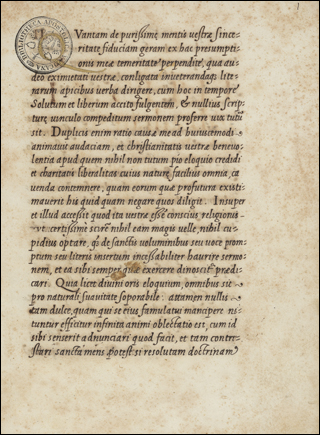 Vantam de purissimę mentis vestrę since-
ritate fiduciam geram ex hac presumpti-
onis meę temeritate perpendite, qua au-
deo eximietati vestrae, colligata inveterandaque lite-
rarum apicibus verba dirigere, cum hoc in tempore
Solutum et liberum accito fulgentem, & nullius scrip-
turę vinculo compeditum sermonem proferre vix tutum
sit. Duplicis enim ratio causae mead huiuscemodi
animavit audaciam, et christianitatis vestrae benevo-
lentia apud quem nihil non tutum pio eloquio credidi
et charitatis liberalitas cuius naturae facilius omnia ca
venda contemnere, quam eorum quae profutura existi-
maverit his quid quam negare quos diligit. Insuper
et illud accessit quod ita vestrae esse conscius religionis-
vt certissime scirem nihil eam magis uelle, nihil cu-
pidius optare, qs de sanctis voluminibus seu voce prom-
ptum seu literis insertum incessabiliter haurire sermo-
nem, et ea sibi semper quae exercere dinoscitur prędi-
cari. Quia licet diuini oris eloquium, omnibus sit
pro naturali suauitate soporabile: attamen nullis
tam dulce, quam qui se eius famulatui mancipere nis-
tuntur efficitur infinita animi oblectatio est, cum id
sibi senserit adnunciari quod facit, et tam contre-
stari sancta mens potest si resolutam doctrinam